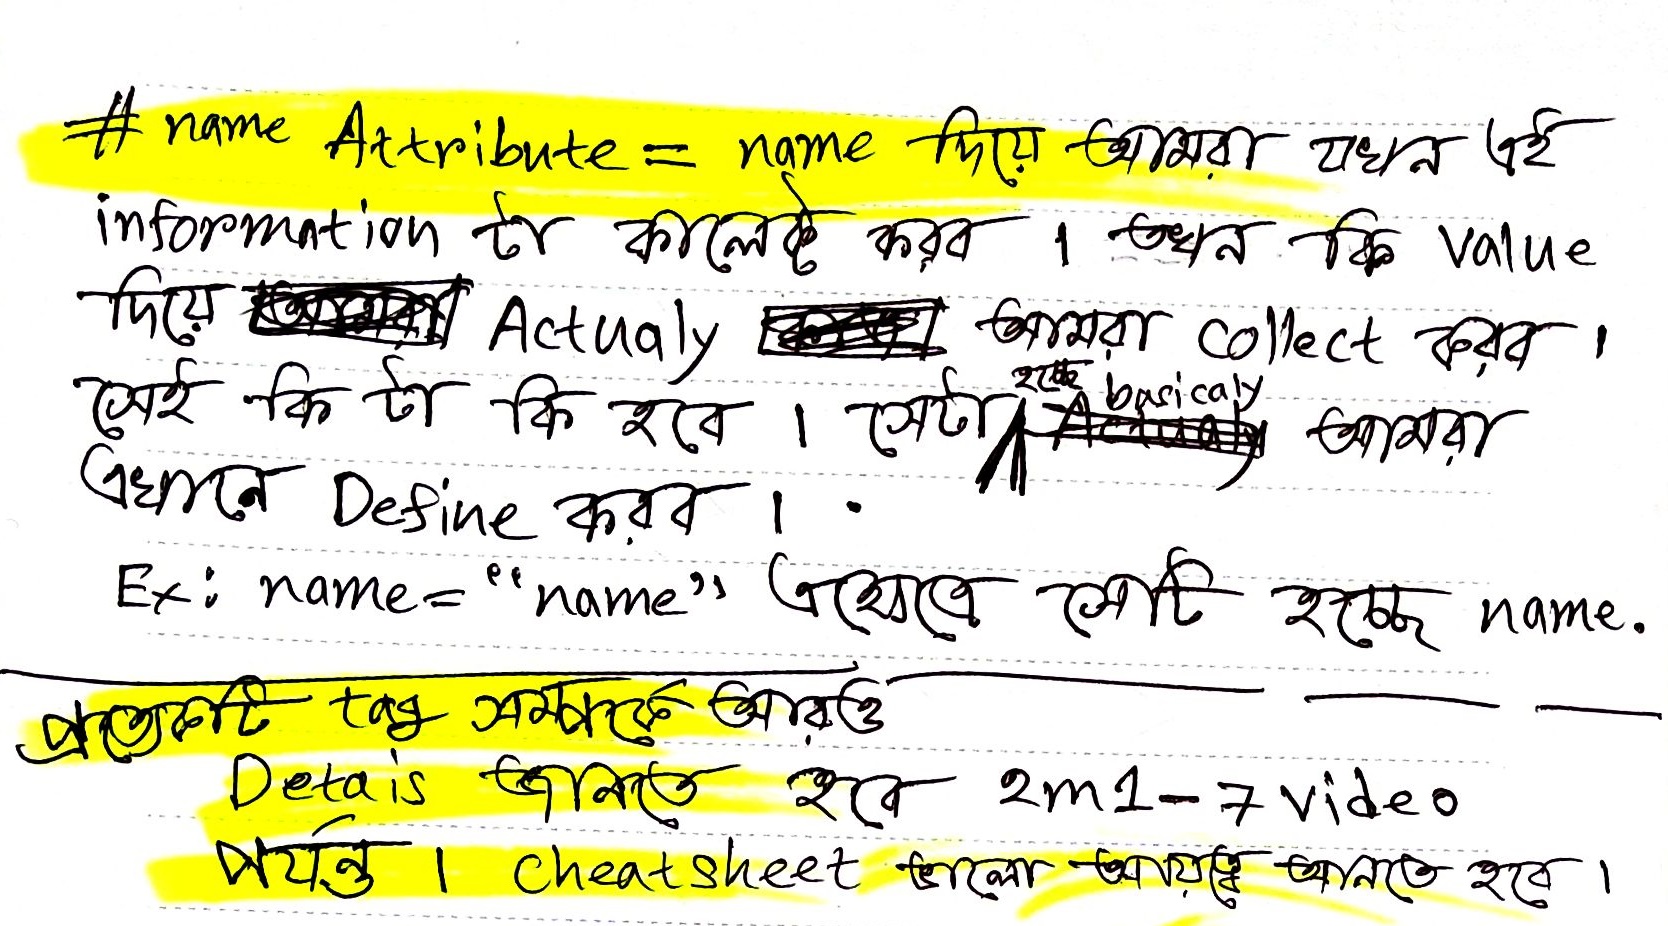 # name Attribute = name দিয়ে আমরা যখন এই
information টা কালেক্ট করব । তখন কি value
দিয়ে Actualy আমরা collect করব ।
সেই কি টা কি হবে । সেটা হচ্ছে basicaly আমরা
এখানে Define করব ।
Ex: name = "name" এক্ষেত্রে সেটি হচ্ছে name.
প্রত্যেকটি tag সম্পর্কে আরও
Detais জানতে হবে 2m1-7 video
পর্যন্ত । cheatsheet ভালো আয়ত্বে আনতে হবে ।